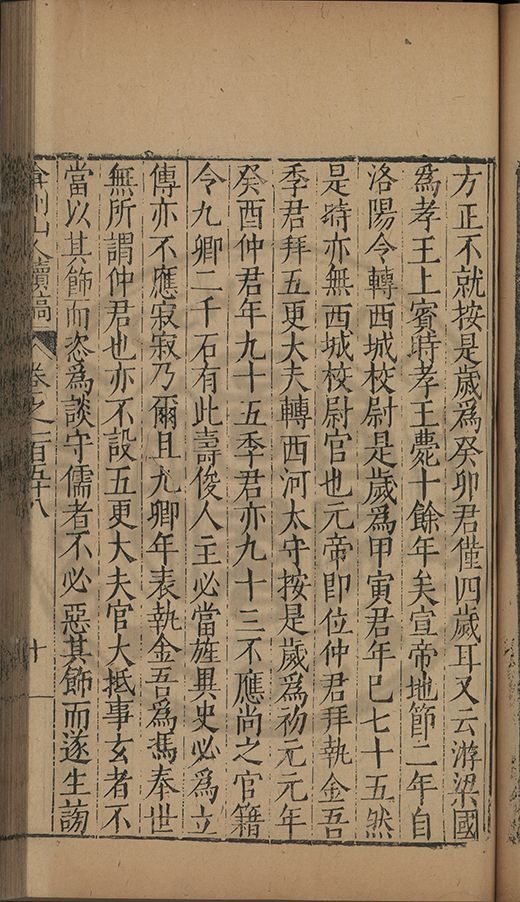 方正不就按是歲爲癸卯君僅四歲耳又云游梁國
爲孝王上賓時孝王薨十餘年矣宣帝地節二年自
洛陽令轉西城校尉是歲爲甲寅君年已七十五然
是時亦無西城校尉官也元帝即位仲君拜執金吾
季君拜五更大夫轉西河太守按是歲爲初元元年
癸酉仲君年九十五季君亦九十三不應尚之官籍
令九卿二千石有此壽俊人主必當旌異史必爲立
傳亦不應寂寂乃爾且九卿年表執金吾爲馮奉世
無所謂仲君也亦不設五更大夫官大抵事玄者不
當以其飾而恣爲談守儒者不必惡其飾而遂生謗
弇州山人續稿 卷之一百五十八 十